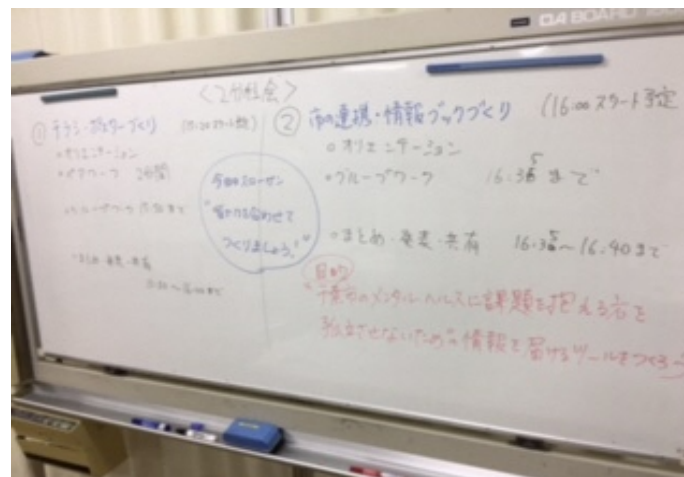 OA BOARD
<2分社会>
① チラシ・ポスターづくり (15:20スタート予定)
・オリエンテーション
・ペアワーク 2分間
・グループワーク 15:50まで
・まとめ・発表・共有
15:50～16:00まで
今回のスローガン
"皆の力を合わせて
つくりましょう!"
② 市の連携・情報ブックづくり (16:00スタート予定
・オリエンテーション
・グループワーク 16:35まで
・まとめ・発表・共有 16:35～16:40まで
目的
"千葉市のメンタルヘルスに課題を抱える方を
孤立させないための情報を届けるツールをつくろう